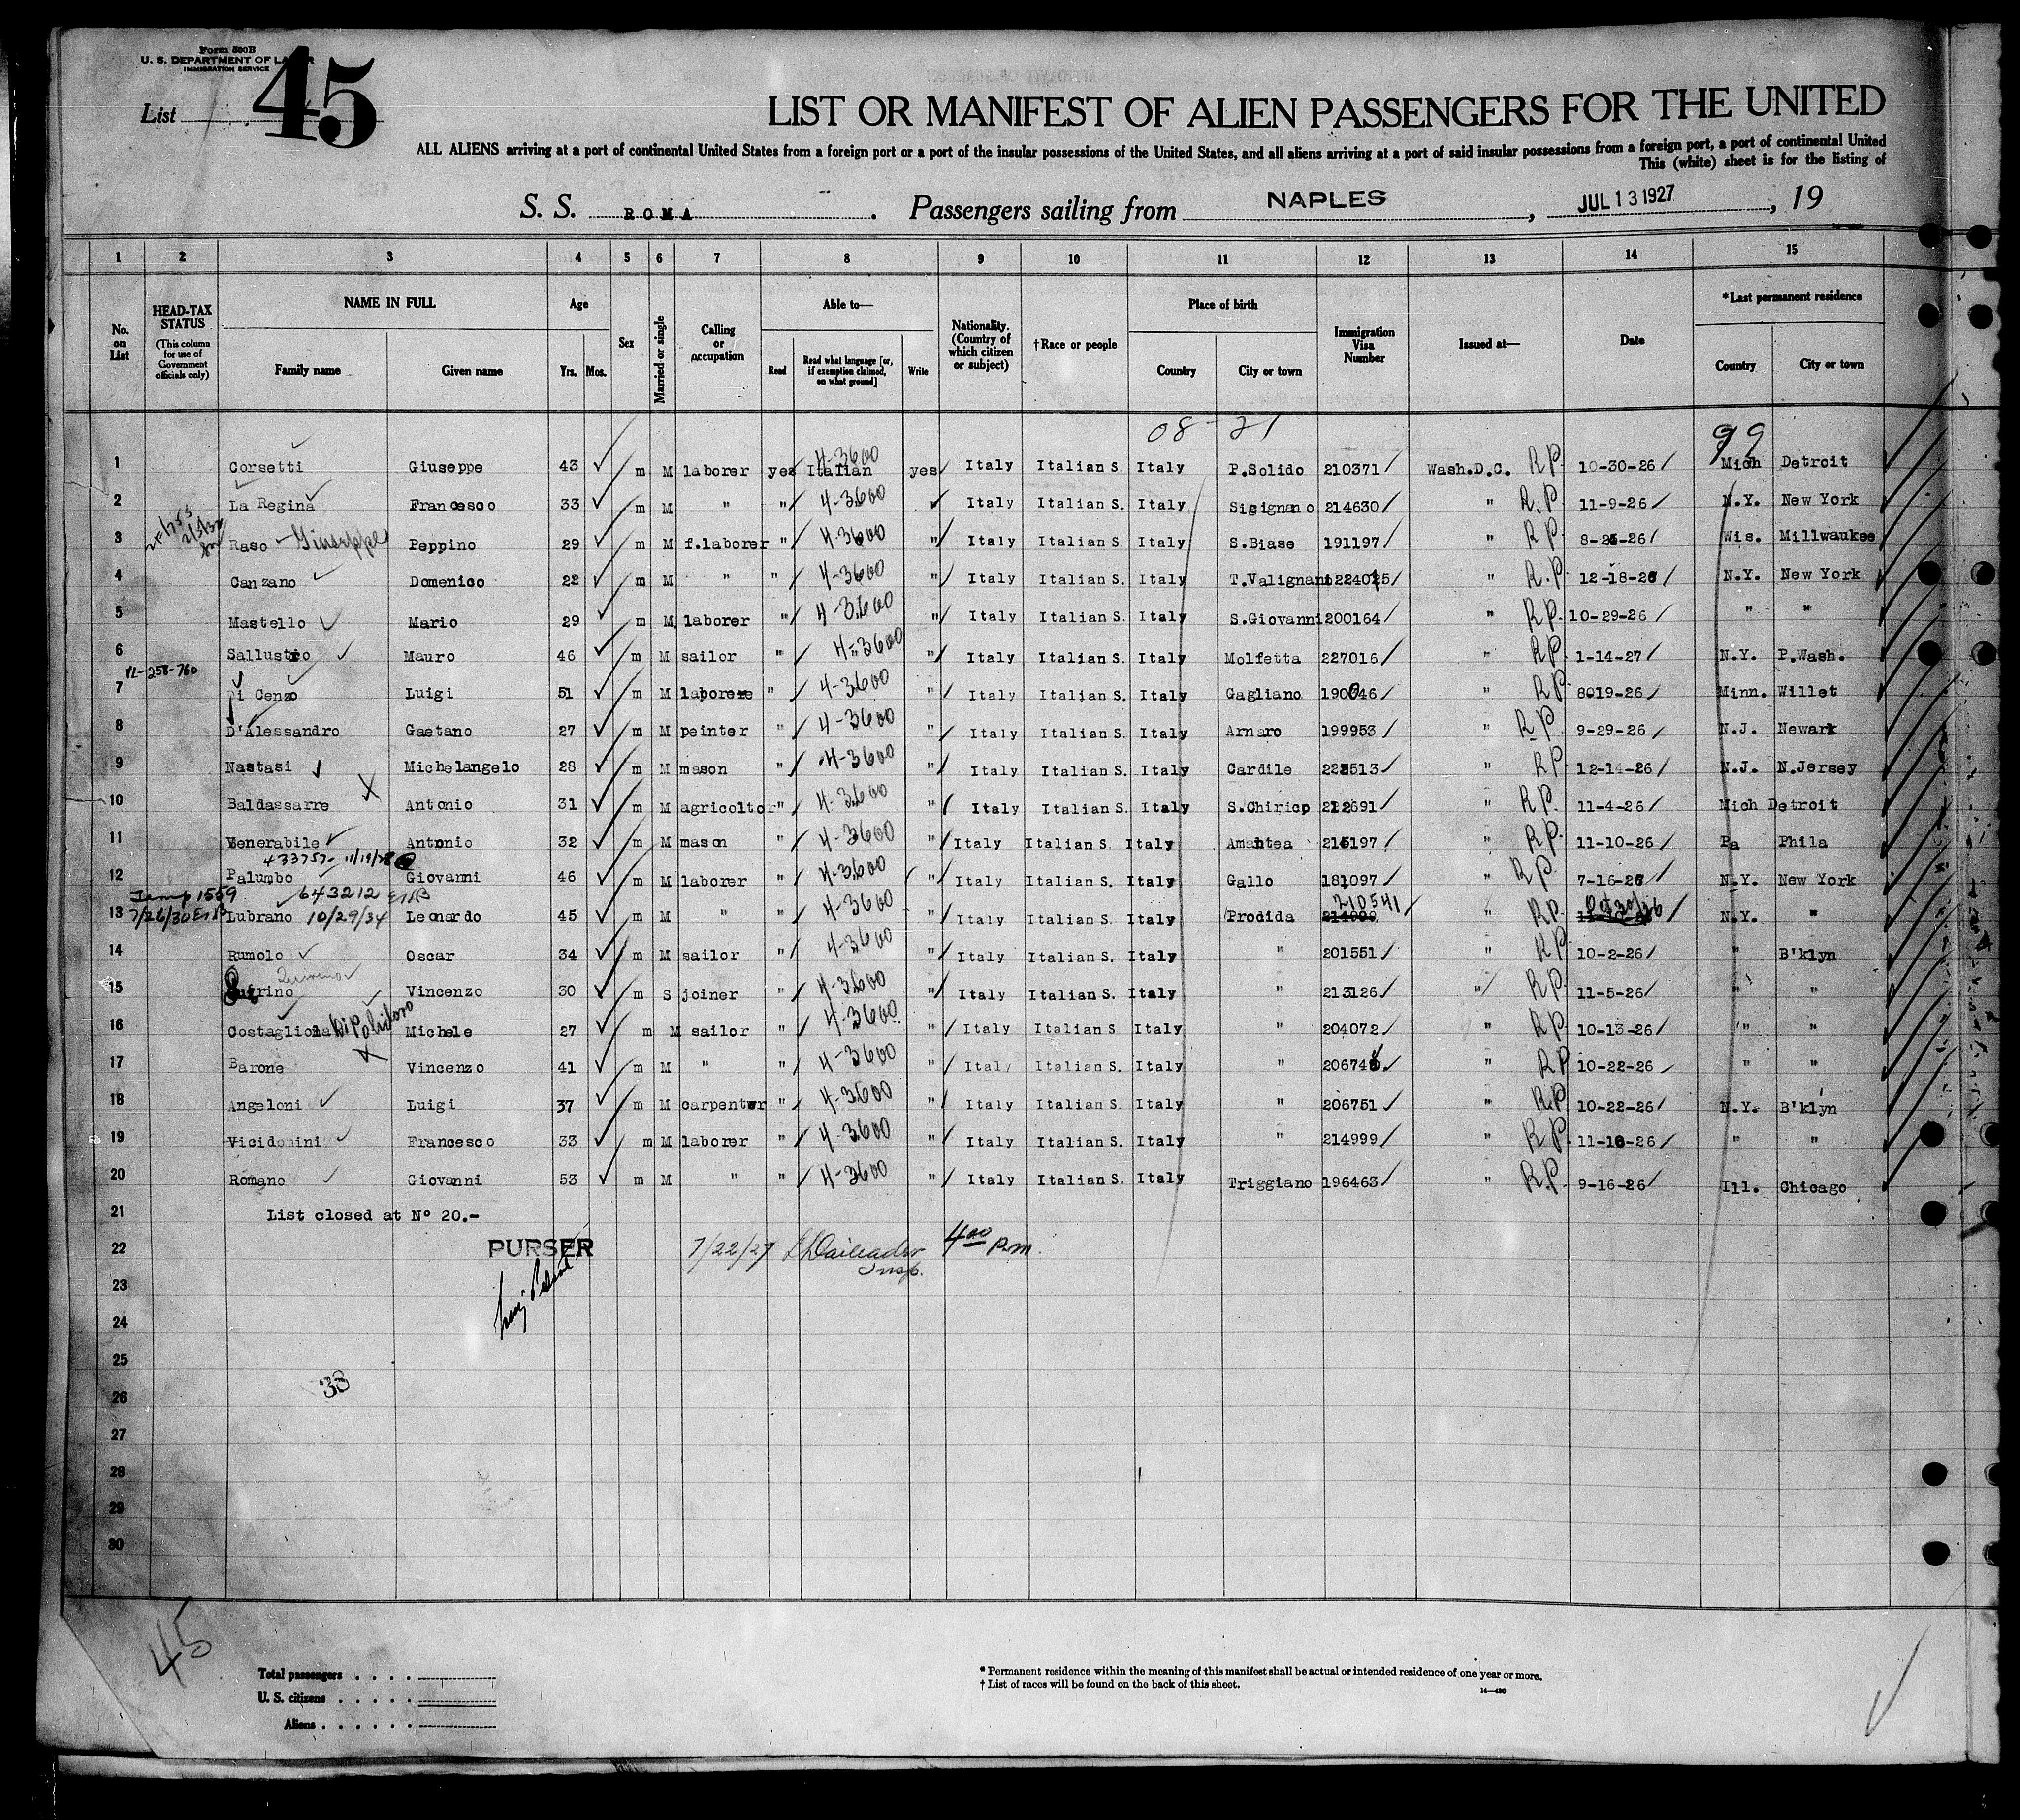 Form 500B
U. S. DEPARTMENT OF LABOR
IMMIGRATION SERVICE
List 45
LIST OR MANIFEST OF ALIEN PASSENGERS FOR THE UNITED
ALL ALIENS arriving at a port of continental United States from a foreign port or a port of the insular possessions of the United States, and all aliens arriving at a port of said insular possessions from a foreign port, a port of continental United
This (white) sheet is for the listing of
S. S. ROMA . Passengers sailing from NAPLES , JUL 13 1927 , 19
1 2 3 4 5 6 7 8 9 10 11 12 13 14 15
No. on List
HEAD-TAX STATUS (This column for use of Government officials only)
NAME IN FULL Family name Given name
Age Yrs. Mos.
Sex
Married or single
Calling or occupation
Able to— Read Read what language [or, if exemption claimed, on what ground] Write
Nationality. (Country of which citizen or subject)
†Race or people
Place of birth Country City or town
Immigration Visa Number
Issued at—
Date
*Last permanent residence Country City or town
08 21 99
1 Corsetti Giuseppe 43 m M laborer yes Italian 4-3600 yes Italy Italian S. Italy P.Solido 210371 Wash.D.C. RP. 10-30-26 Mich Detroit
2 La Regina Francesco 33 m M " " 4-3600 " Italy Italian S. Italy Sicignano 214630 " R.P. 11-9-26 N.Y. New York
3 Raso Giuseppe Peppino 29 m M f.laborer " 4-3600 " Italy Italian S. Italy S.Biase 191197 " RP. Wis. Millwaukee
4 Canzano Domenico 22 m M " " 4-3600 " Italy Italian S. Italy T.Valignani " R.P. 12-18-26 N.Y. New York
5 Mastello Mario 29 m M laborer " 4-3600 " Italy Italian S. Italy S.Giovanni 200164 " RP. 10-29-26 " "
6 Sallustio Mauro 46 m M sailor " 4-3600 " Italy Italian S. Italy Molfetta 227016 " RP. 1-14-27 N.Y. P.Wash.
VL-258-760
7 Di Cenzo Luigi 51 m M laborere " 4-3600 " Italy Italian S. Italy Gagliano 190046 " RP 8019-26 Minn. Willet
8 D'Alessandro Gaetano 27 m M peinter " 4-3600 " Italy Italian S. Italy Arnaro 199953 " R.P. 9-29-26 N.J. Newark
9 Nastasi Michelangelo 28 m M mason " 4-3600 " Italy Italian S. Italy Cardile " RP 12-14-26 N.J. N.Jersey
10 Baldassarre Antonio 31 m M agricoltor " 4-3600 " Italy Italian S. Italy S.Chirico 212691 " RP. 11-4-26 Mich Detroit
11 Venerabile Antonio 32 m M mason " 4-3600 " Italy Italian S. Italy Amantea 215197 " RP. 11-10-26 Pa Phila
433757- 11/19/38
12 Palumbo Giovanni 46 m M laborer " 4-3600 " Italy Italian S. Italy Gallo 181097 " RP. 7-16-26 N.Y. New York
Temp 1559 643212
13 7/26/30 Lubrano 10/29/34 Leonardo 45 m M " " 4-3600 " Italy Italian S. Italy Prodida 210541 " RP. Oct 30/26 N.Y. "
14 Rumolo Oscar 34 m M sailor " 4-3600 " Italy Italian S. Italy " 201551 " RP 10-2-26 " B'klyn
15 Vincenzo 30 m S joiner " 4-3600 " Italy Italian S. Italy " 213126 " RP. 11-5-26 " "
16 Costagliola di Polidoro Michele 27 m M sailor " 4-3600 " Italy Italian S Italy " 204072 " RP. 10-13-26 " "
17 Barone Vincenzo 41 m M " " 4-3600 " Italy Italian S. Italy " " RP 10-22-26 " "
18 Angeloni Luigi 37 m M carpenter " 4-3600 " Italy Italian S. Italy " 206751 " R.P 10-22-26 N.Y. B'klyn
19 Vicidomini Francesco 33 m M laborer " 4-3600 " Italy Italian S. Italy " 214999 " RP. 11-10-26 " "
20 Romano Giovanni 53 m M " " 4-3600 " Italy Italian S. Italy Triggiano 196463 " R.P. 9-16-26 Ill. Chicago
21 List closed at Nº 20.-
22 PURSER 7/22/27 4 00 P.m.
Insp.
23
24
25
26 38
27
28
29
30
45
Total passengers . . . .
U. S. citizens . . . . .
Aliens . . . . . .
* Permanent residence within the meaning of this manifest shall be actual or intended residence of one year or more.
† List of races will be found on the back of this sheet.
14—430